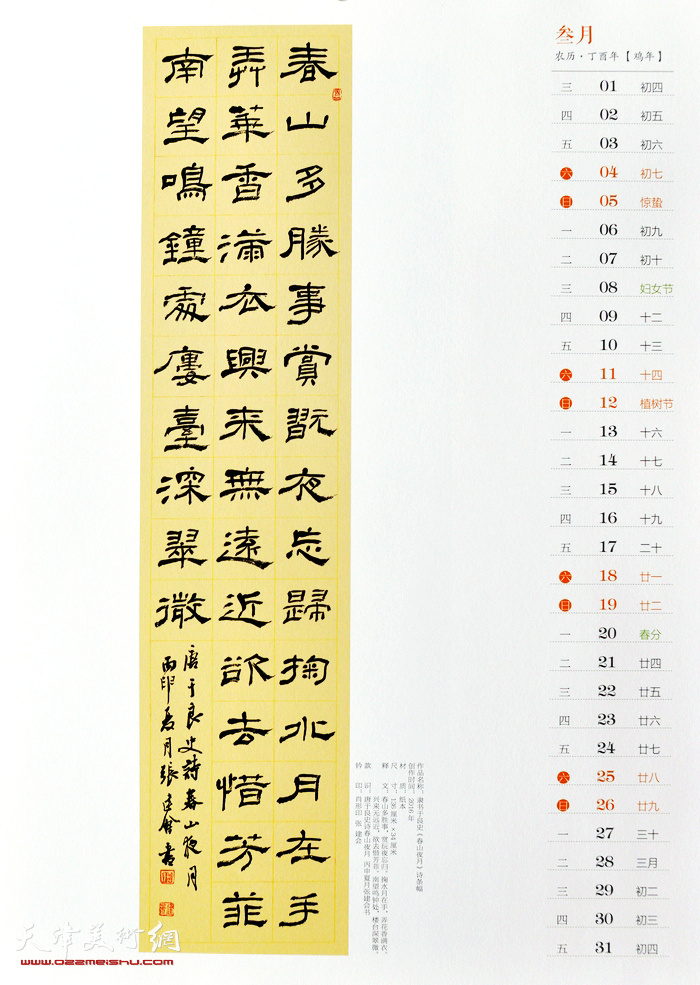 春山多勝事賞翫夜忘歸掬水月在手
弄華香滿衣興来無遠近欲去惜芳菲
南望鳴鐘處廔臺深翠微
唐于良史詩春山夜月
丙申夏月張建會書
叁月
农历·丁酉年【鸡年】
三 01 初四
四 02 初五
五 03 初六
六 04 初七
日 05 惊蛰
一 06 初九
二 07 初十
三 08 妇女节
四 09 十二
五 10 十三
六 11 十四
日 12 植树节
一 13 十六
二 14 十七
三 15 十八
四 16 十九
五 17 二十
六 18 廿一
日 19 廿二
一 20 春分
二 21 廿四
三 22 廿五
四 23 廿六
五 24 廿七
六 25 廿八
日 26 廿九
一 27 三十
二 28 三月
三 29 初二
四 30 初三
五 31 初四
作品名称：隶书于良史《春山夜月》诗条幅
创作时间：2016年
材 质：纸本
尺 寸：136厘米×34厘米
释 义：春山多胜事，赏玩夜忘归。掬水月在手，弄花香满衣。
兴来无远近，欲去惜芳菲。南望鸣钟处，楼台深翠微。
款 识：唐于良史诗春山夜月 丙申夏月张建会书
钤 印：肖形印 张 建会
天津美術網
www.022meishu.com